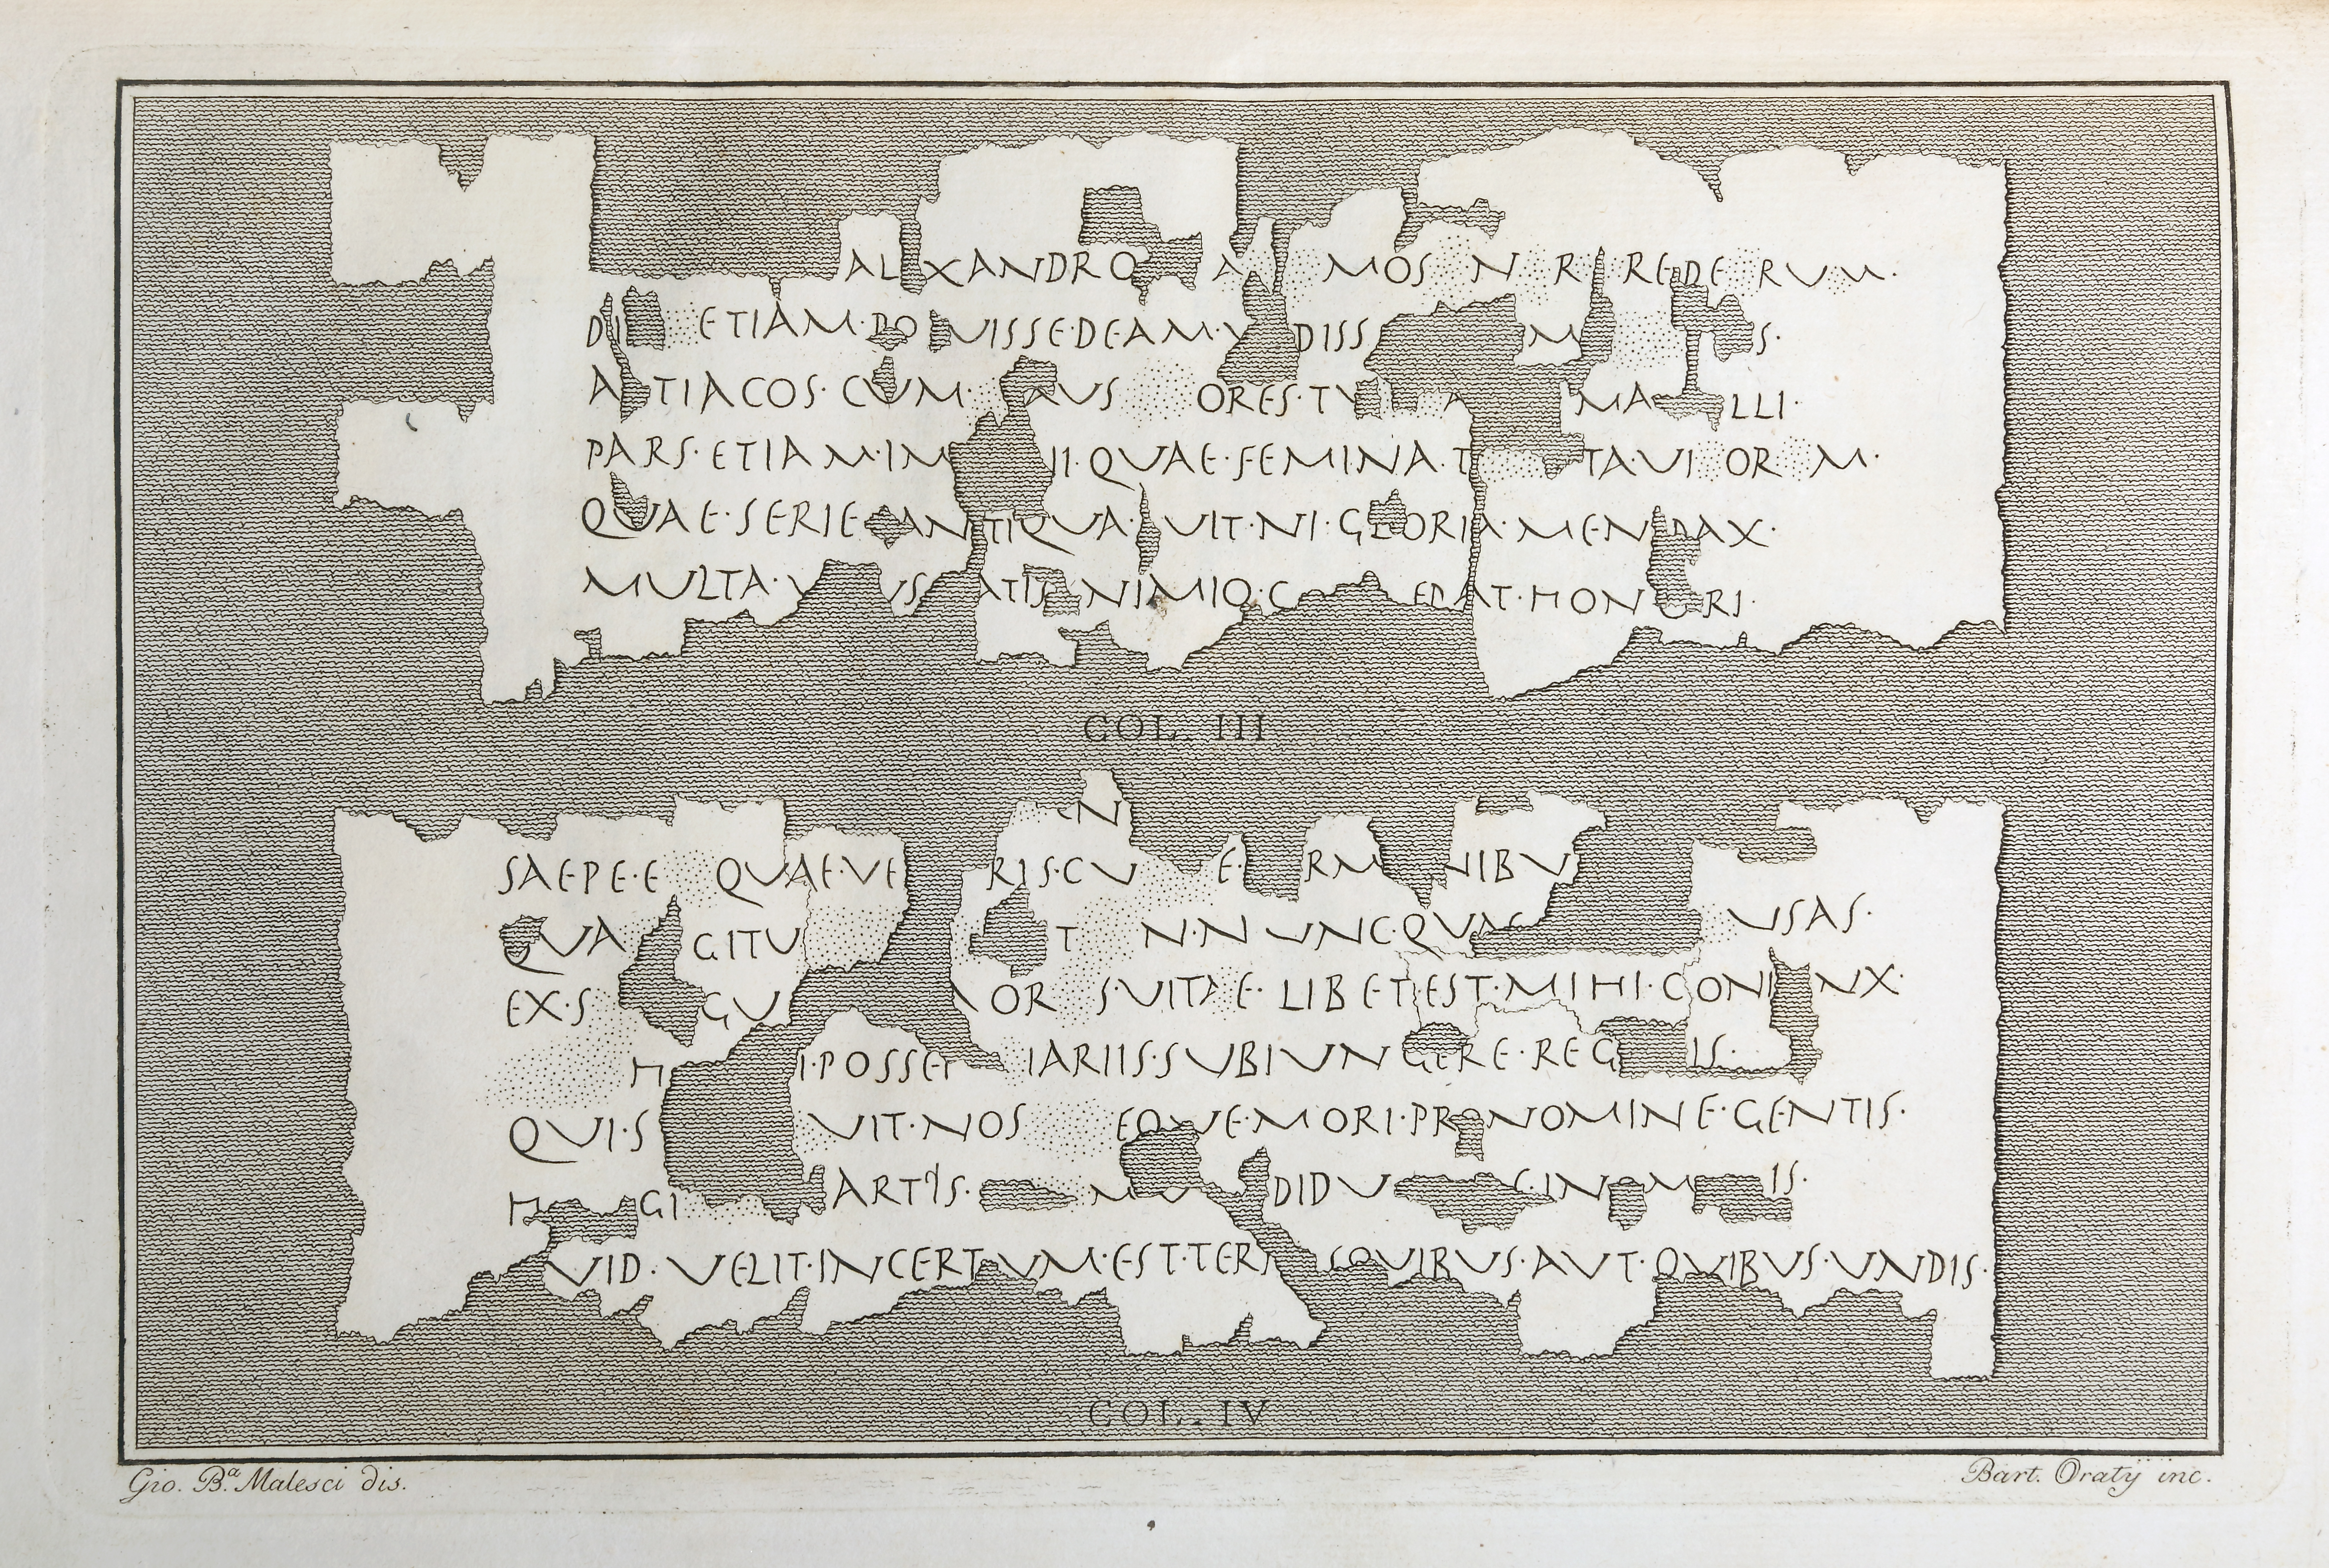 AL XANDRO A MOS N R REDE RUM·
DI ETIAM·DO UISSE·DEAM·V DISS M S·
A TIACOS·CUM· AUS ORES·TV A MA LLI·
PARS·ETIAM·IM II·QUAE·FEMINA·T TA·VI OR M·
QUAE·SERIE ANTIQUA· UIT·NI·GLORIA·MENDAX·
MULTA·V US ATIS NIMIO·C EDAT·HONORI·
COL. III
EN
SAEPE·E QUAE·VE RIS·CU E· RM NIBU
QUA GITU T N·N UNC·QUAE USAS·
EX·S GU OR S·UITAE·LIBET·EST·MIHI·CONI NX·
H I·POSSET IARIIS·SUBIUNGERE·REG IS·
QUI·S UIT·NOS EQUE·MORI·PRONOMINE·GENTIS·
H GI ARTIS· MU DIDU C·IN·OM IS·
UID·VELIT·INCERTUM·EST·TERR S·QUIBUS·AUT·QUIBUS·UNDIS·
COL. IV
Gio. B.ª Malesci dis.
Bart. Oratij inc.